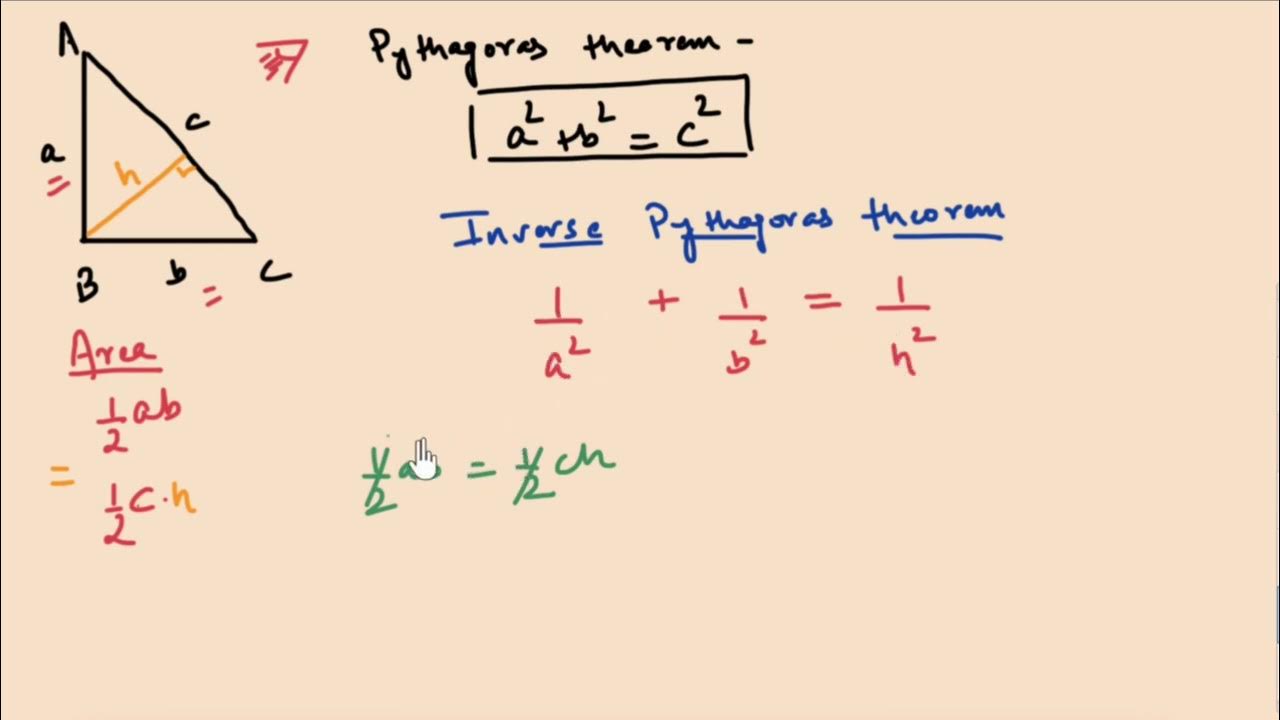 A
Pythagoras theorem -
a² + b² = c²
c
a
h
B
b
C
Inverse Pythagoras theorem
1/a² + 1/b² = 1/h²
Area
1/2 ab
= 1/2 c·h
1/2 = 1/2 ch